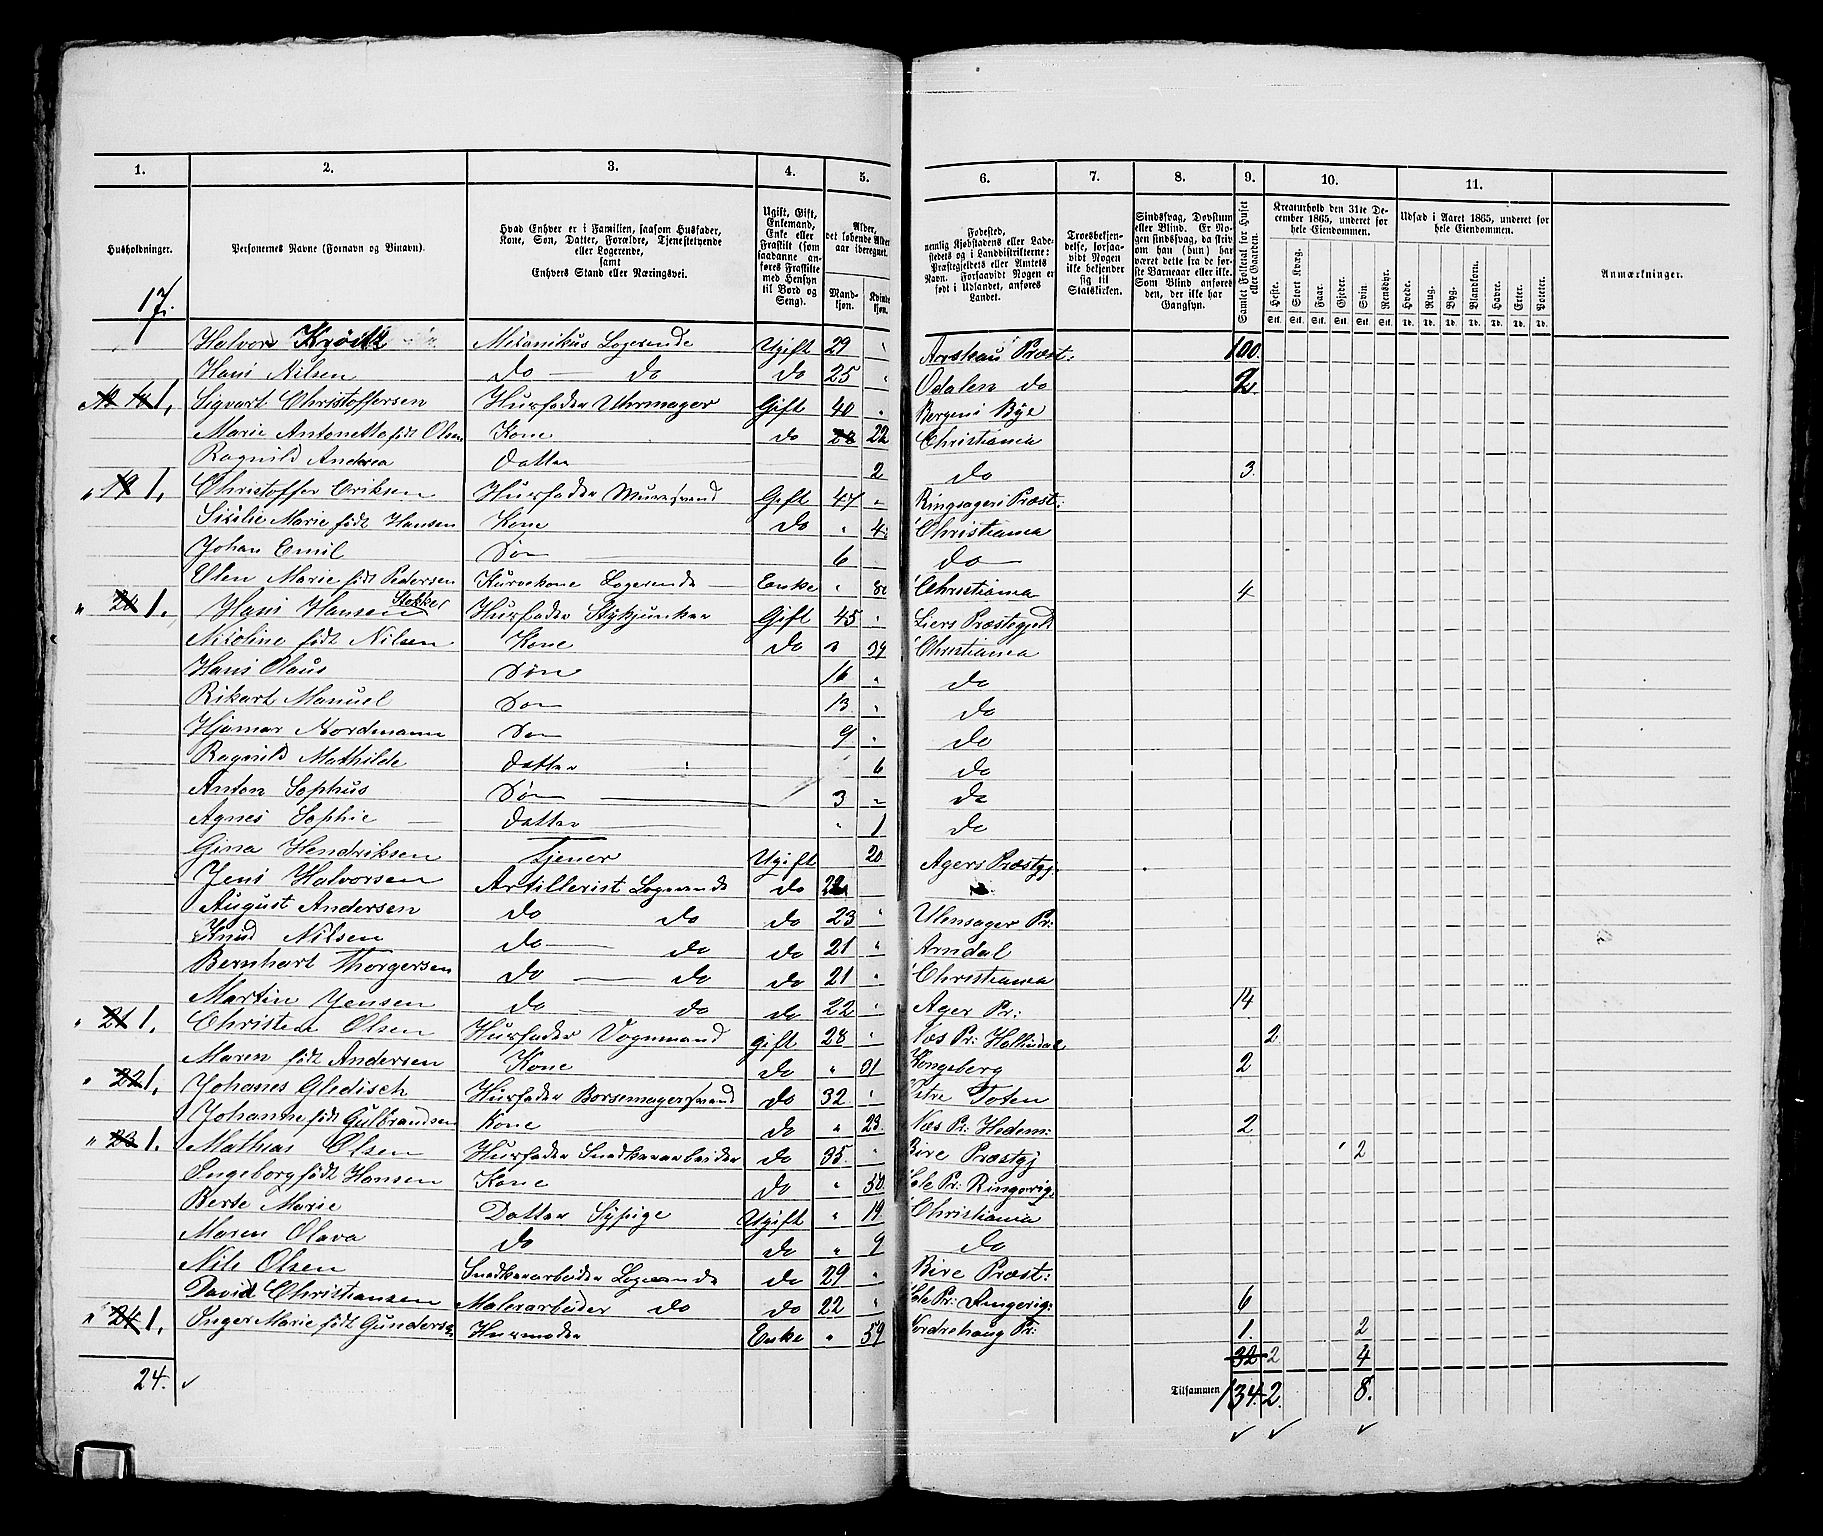 1. 2. 3. 4. 5. 6. 7. 8. 9. 10. 11.
Husholdninger.
Personernes Navne (Fornavn og Binavn).
Hvad Enhver er i Familien, saasom Husfader, Kone, Søn, Datter, Forældre, Tjenestetyende eller Logerende, samt Enhvers Stand eller Næringsvei.
Ugift, Gift, Enkemand, Enke eller Fraskilt (som saadanne anføres Fraskilte med Hensyn til Bord og Seng).
Alder, det løbende Alder aar iberegnet.
Mandkjøn. Kvindekjøn.
Fødested, nemlig Kjøbstadens eller Ladestedets og i Landdistrikterne: Præstegjeldets eller Amtets Navn. Forsaavidt Nogen er født i Udlandet, anføres Landet.
Troesbekjendelse, forsaavidt Nogen ikke bekjender sig til Statskirken.
Sindssvag, Døvstum eller Blind. Er Nogen sindssvag, da skriv om han (hun) har været dette fra de første Barneaar eller ikke. Som Blind anføres den, der ikke har Gangsyn.
Samlet Folketal for Huset eller Gaarden.
Kreaturhold den 31te December 1865, underet for hele Eiendommen.
Heste. Stort Kvæg. Faar. Gjeder. Svin. Rensdyr.
Udsæd i Aaret 1865, underet for hele Eiendommen.
Hvede. Rug. Byg. Blandkorn. Havre. Erter. Poteter.
Stk. Stk. Stk. Stk. Stk. Stk. Td. Td. Td. Td. Td. Td. Td.
Anmærkninger.
17.
Halvor Krøik Mekanikus Logerende Ugift 29 " Præst: 100
Hans Nilsen do — do do 25 " Odalen do 2
1, Sigvart Christoffersen Husfader Uhrmager Gift 40 " Bergens Bye
Marie Antonette født Olsen Kone do 22 Christiania
Ragnild Andrea datter 2 do 3.
" 19 1, Christoffer Eriksen Husfader Muursvend Gift 47 " Ringsager Præst:
Sisilie Marie født Hansen Kone do " 4 Christiania
Johan Emil Søn 6 do
Elen Marie født Pedersen Kurvekone Logerende Enke " 80 Christiania 4
" 20 1. Hans Hansen Stekker Husfader Stykjunker Gift 45 " Liers Præstegjeld
Nikoline født Nilsen Kone do " 39 Christiania
Hans Olaus Søn 16 " do
Rikart Manuel Søn 13 " do
Hjamar Nordmann Søn 9 " do
Ragnild Mathilde datter 6 do
Anton Sophus Søn 3 " do
Agnes Sophie datter " 1 do
Gina Hendriksen Tjener Ugift 20 Agers Præstgj.
Jens Halvorsen Artillerist Logerende do 22
August Andersen do do do 23 " Ulensager Pr:
Knud Nilsen do do do 21 " Arndal
Bernhart Thorgersen do — do do 21 " Christiania
Martin Jensen do — do do 22 " Ager Pr: 14
" 21 1. Christen Olsen Husfader Vognmand gift 28 " Næs Pr: Hallindal 2
Maren født Andersen Kone do " 31 Kongsberg 2
" 22 1, Johanes Gledisch Husfader Børsemagersvend do 32 " Vstre Toten
Johanne født Gulbrandsen Kone do " 23 Næs Pr: Hedem: 2.
" 23 1. Mathias Olsen Husfader Snedkerarbeider do 35. " Bire Præstgj 2
Ingeborg født Hansen Kone do " 50. Hole Pr: Ringerig.
Berte Marie Datter Sypige Ugift " 19 Christiania
Maren Olava do do " 9 do
Nils Olsen Snedkerarbeider Logerende do 29 " Bire Præst:
David Christiansen Malerarbeider do do 22 " Hole Pr: Ringerig: 6
" 24 1, Inger Marie født Gundersen Husmoder Enke " 59 Nordrehaug Pr: 1. 2
32 2 4
24. ✓ Tilsammen 134. 2. 8.
✓ ✓ ✓